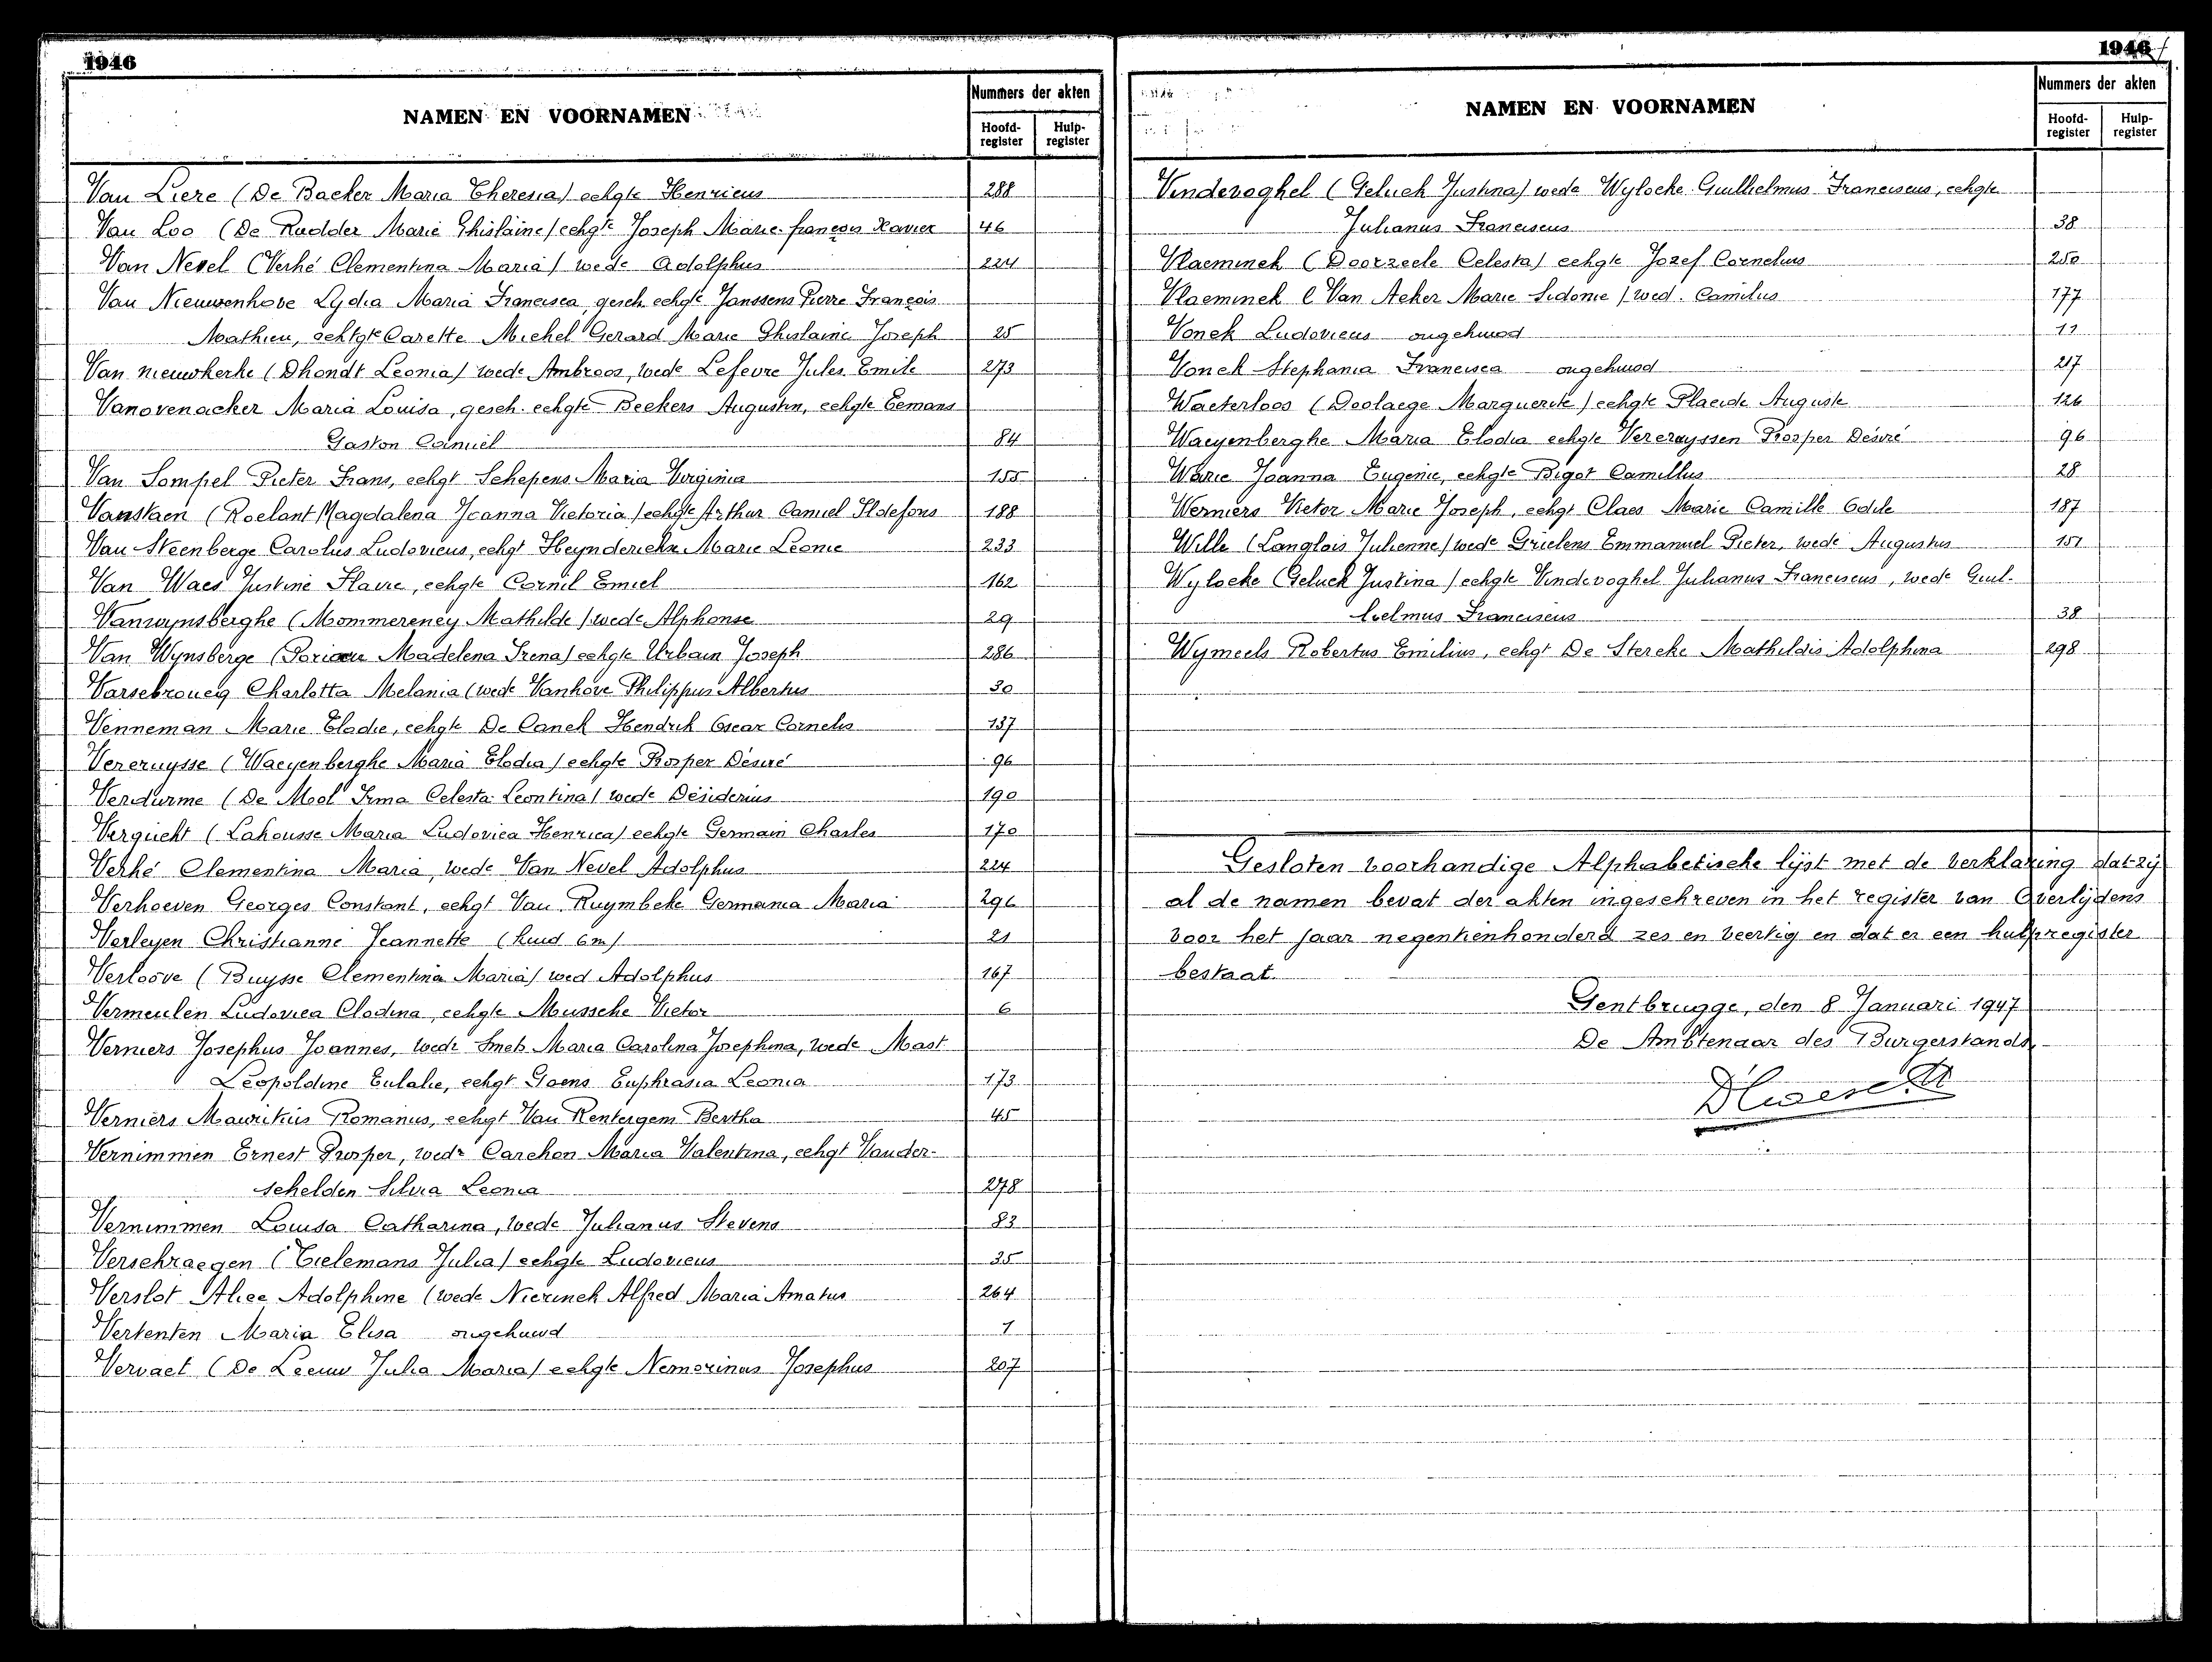 1946
NAMEN EN VOORNAMEN
Nummers der akten
Hoofd-register
Hulp-register
Van Liere (De Backer Maria Theresia) echgte Henricus 288
Van Loo (De Rudder Marie Ghislaine) echgte Joseph Marie-françois Xavier 46
Van Nevel (Verhé Clementina Maria) wede Adolphus 224
Van Nieuwenhove Lydia Maria Francisca, gesch. echgte Janssens Pierre François
Mathieu, echtgte Carette Michel Gerard Marie Ghislaine Joseph 25
Van nieuwkerke (Dhondt Leonia) wede Ambroos, wede Lefevre Jules Emile 273
Vanovenacker Maria Louisa, gesch. echgte Beckers Augustin, echgte Eemans
Gaston Camiel 84
Van Sompel Pieter Frans, echgt Schepens Maria Virginia 155
Vanstaen (Roelant Magdalena Joanna Victoria) echgte Arthur Camiel Ildefons 188
Van Steenberge Carolus Ludovicus, echgt Heynderickx Marie Leonie 233
Van Waes Justine Flavie, echgte Cornil Emiel 162
Vanwynsberghe (Mommerency Mathilde) wede Alphonse 29
Van Wynsberge (Poriau Madelena Irena) echgte Urbain Joseph 286
Varsebroucq Charlotta Melania (wede Vanhove Philippus Albertus 30
Venneman Marie Elodie, echgte De Canck Hendrik Oscar Cornelis 137
Vercruysse (Waeyenberghe Maria Elodia) echgte Prosper Désiré 96
Verdurme (De Mol Irma Celesta Leontina) wede Désiderius 190
Vergucht (Lahousse Maria Ludovica Henrica) echgte Germain Charles 170
Verhé Clementina Maria, wede Van Nevel Adolphus 224
Verhoeven Georges Constant, echgt Van Ruymbeke Germania Maria 296
Verleyen Christianne Jeannette (kind 6m) 21
Verloove (Buysse Clementina Maria) wed Adolphus 167
Vermeulen Ludovica Clodina, echgte Mussche Victor 6
Verniers Josephus Joannes, wedr Smets Maria Carolina Josephina, wede Mast
Leopoldine Eulalie, echgt Goens Euphrasia Leonia 173
Verniers Mauritius Romanus, echgt Van Rentergem Bertha 45
Vernimmen Ernest Prosper, wedr Carchon Maria Valentina, echgt Vander-
schelden Silvia Leonia 278
Vernimmen Louisa Catharina, wede Julianus Stevens 83
Verschraegen (Tielemans Julia) echgte Ludovicus 35
Verslot Alice Adolphine (wede Nierinck Alfred Maria Amatus 264
Vertenten Maria Elisa ongehuwd 1
Vervaet (De Leeuw Julia Maria) echgte Nemorinus Josephus 207
1946
NAMEN EN VOORNAMEN
Nummers der akten
Hoofd-register
Hulp-register
Vindevoghel (Geluck Justina) wede Wylocke Guilhelmus Franciscus, echgte
Julianus Franciscus 38
Vlaeminck (Doorzeele Celesta) echgte Jozef Cornelius 250
Vlaeminck (Van Acker Marie Sidonie) wed. Camilus 177
Vonck Ludovicus ongehuwd 11
Vonck Stephania Francisca ongehuwd 217
Waeterloos (Doolaege Marguerite) echgte Placide Auguste 126
Waeyenberghe Maria Elodia echgte Vercruyssen Prosper Désiré 96
Warie Joanna Eugenie, echgte Bigot Camillus 28
Werniers Victor Marie Joseph, echgt Claes Marie Camille Odile 187
Wille (Langlois Julienne) wede Grielens Emmanuel Pieter, wede Augustus 151
Wylocke (Geluck Justina) echgte Vindevoghel Julianus Franciscus, wede Guil-
helmus Franciscus 38
Wymeels Robertus Emilius, echgt De Stercke Mathildis Adolphina 298
Gesloten voorhandige Alphabetische lijst met de verklaring dat zij
al de namen bevat der akten ingeschreven in het register van Overlijdens
voor het jaar negentienhonderd zes en veertig en dat er een hulpregister
bestaat.
Gentbrugge, den 8 Januari 1947
De Ambtenaar des Burgerstands